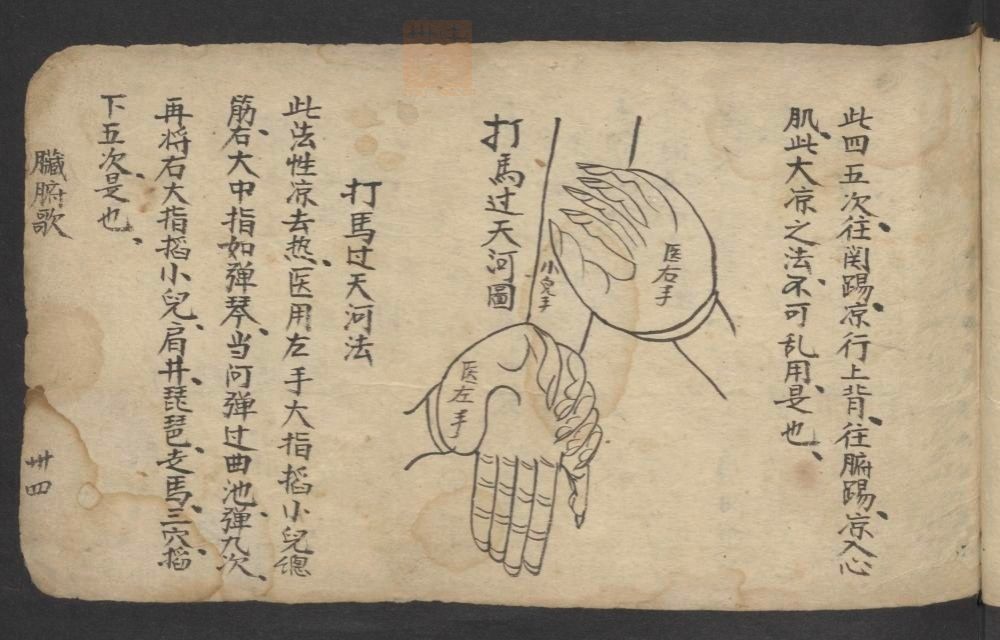 此四五次往関踢、凉行上背、往腑踢、凉入心
肌、此大凉之法、不可乱用、是也、
打馬过天河圖
小兒手
医右手
医左手
打馬过天河法
此法性凉去热、医用左手大指掐小兒總
筋、右大中指如弹琴、当问弹过曲池、弹九次、
再将右大指掐小兒、肩井琵琶、走馬、三穴掐
下五次是也、
臟腑歌
卅四